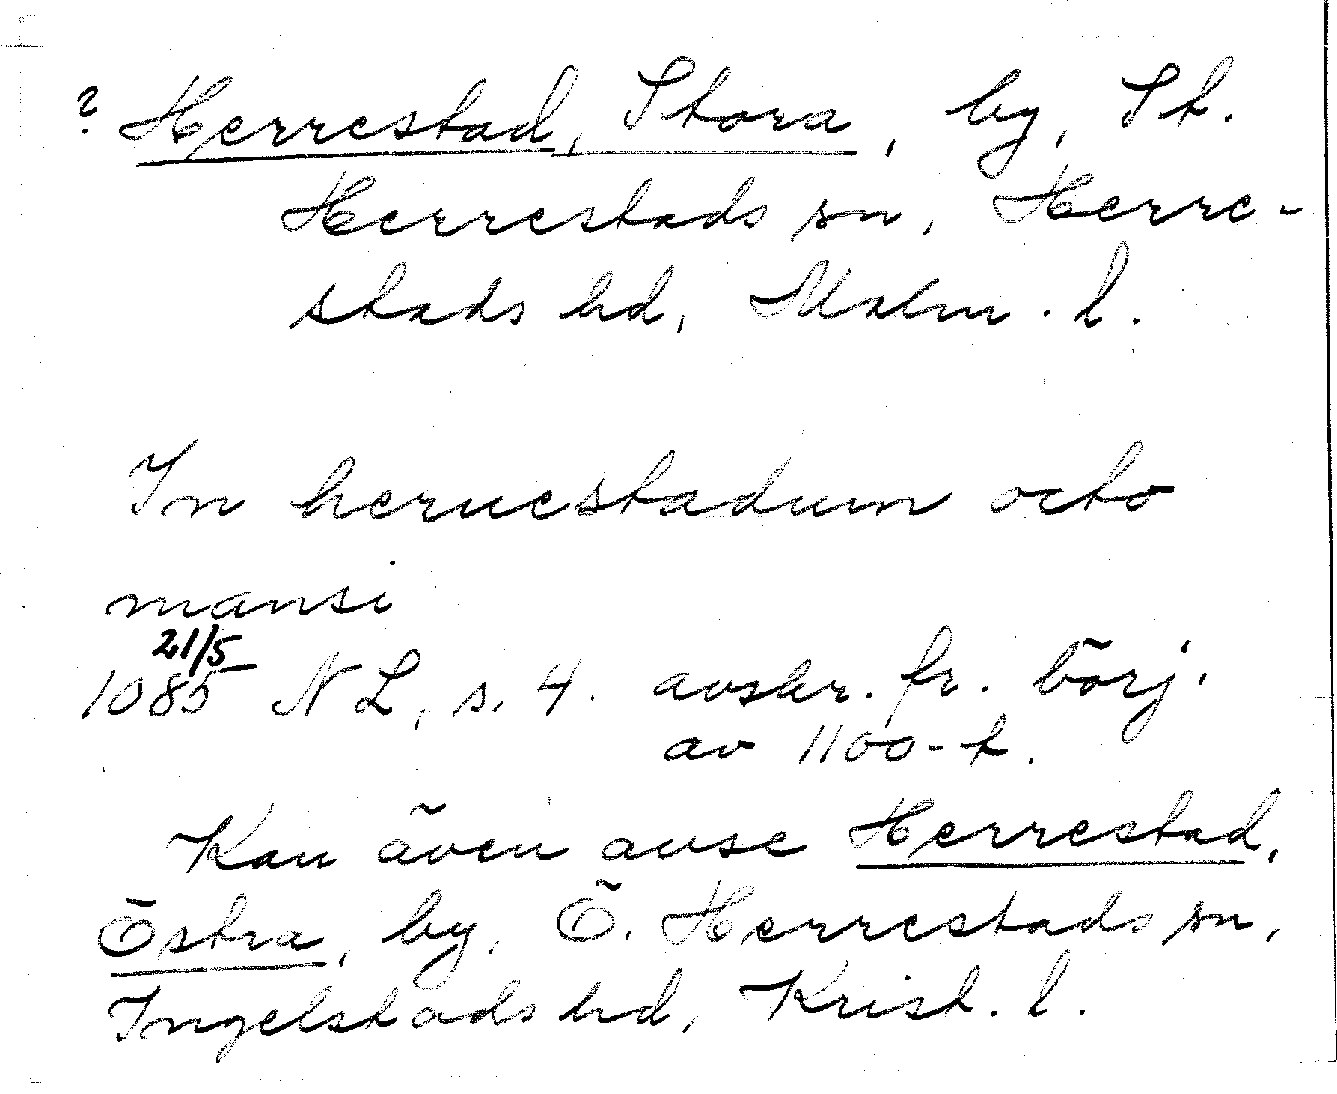 ? Herrestad, Stora, by, St.
Herrestads sn, Herre-
stads hd, Malm. l.
In heruestadum octo
mansi
21/5
1085 NL, s. 4. avskr. fr. börj.
av 1100-t.
Kan även avse Herrestad,
Östra, by, Ö. Herrestads sn,
Ingelstads hd, Krist. l.